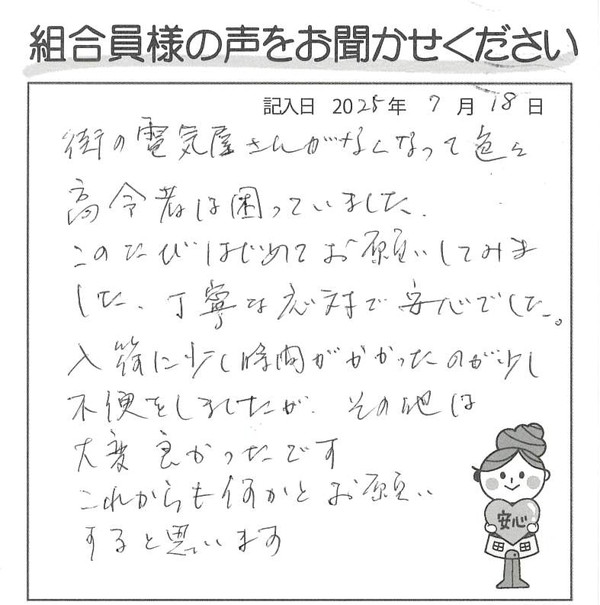 組合員様の声をお聞かせください
記入日 2025年 7月 18日
街の電気屋さんがなくなって色々
高令者は困っていました.
このたびはじめてお願いしてみま
した、丁寧な応対で安心でした。
入荷に少し時間がかかったのが少し
不便をしましたが、その他は
大変良かったです
これからも何かとお願い
すると思います
安心